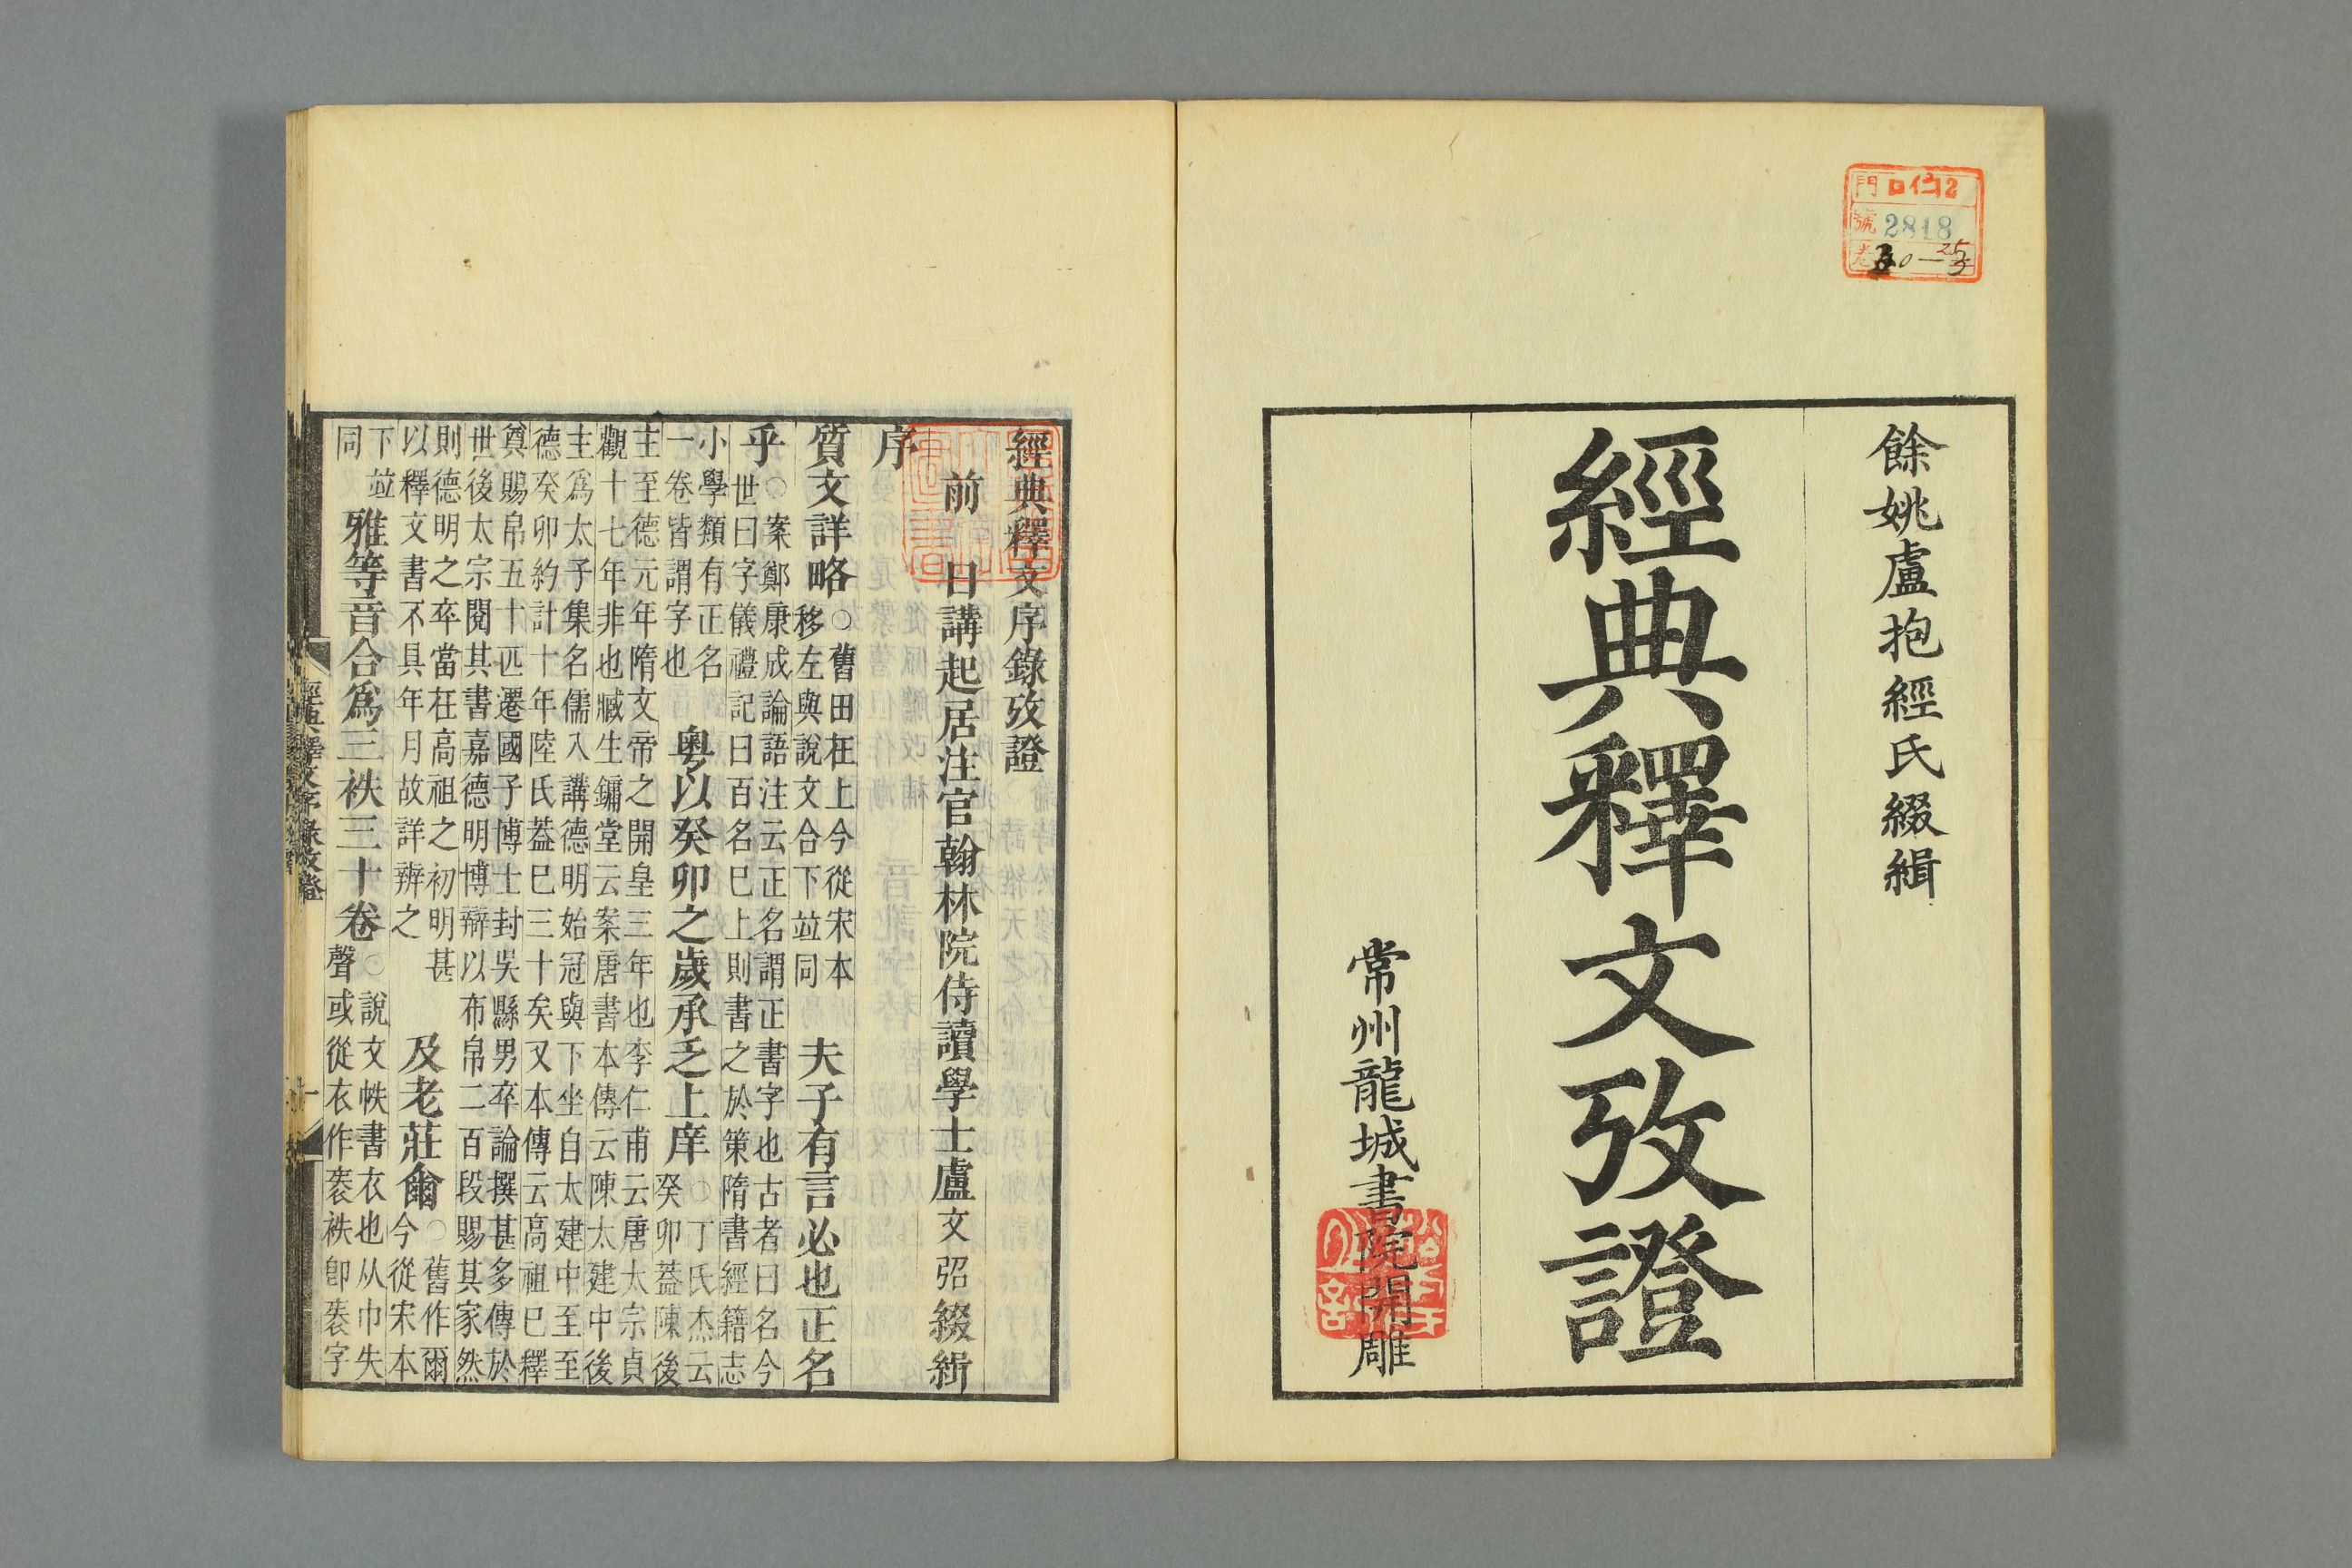 門 ロ 12
號 2818
餘姚盧抱經氏綴緝
經典釋文攷證
常州龍城書院開雕
經典釋文序錄攷證
前日講起居注官翰林院侍讀學士盧文弨綴緝
序
質文詳略○舊田在上今從宋本移左與說文合下竝同夫子有言必也正名
乎○案鄭康成論語注云正名謂正書字也古者曰名今世曰字儀禮記曰百名已上則書之於策隋書經籍志
小學類有正名一卷皆謂字也粤以癸卯之歲承乏上庠○丁氏杰云癸卯葢陳後
主至德元年隋文帝之開皇三年也李仁甫云唐太宗貞觀十七年非也臧生鏞堂云案唐書本傳云陳太建中後
主爲太子集名儒入講德明始冠與下坐自太建中至至德癸卯約計十年陸氏葢已三十矣又本傳云高祖已釋
奠賜帛五十匹遷國子博士封吳縣男卒論撰甚多傳於世後太宗閱其書嘉德明博辯以布帛二百段賜其家然
則德明之卒當在高祖之初明甚以釋文書不具年月故詳辨之及老莊尒○舊作爾今從宋本
下竝同雅等音合爲三袟三十卷○說文帙書衣也从巾失聲或從衣作袠袟卽袠字
經典釋文序錄攷證